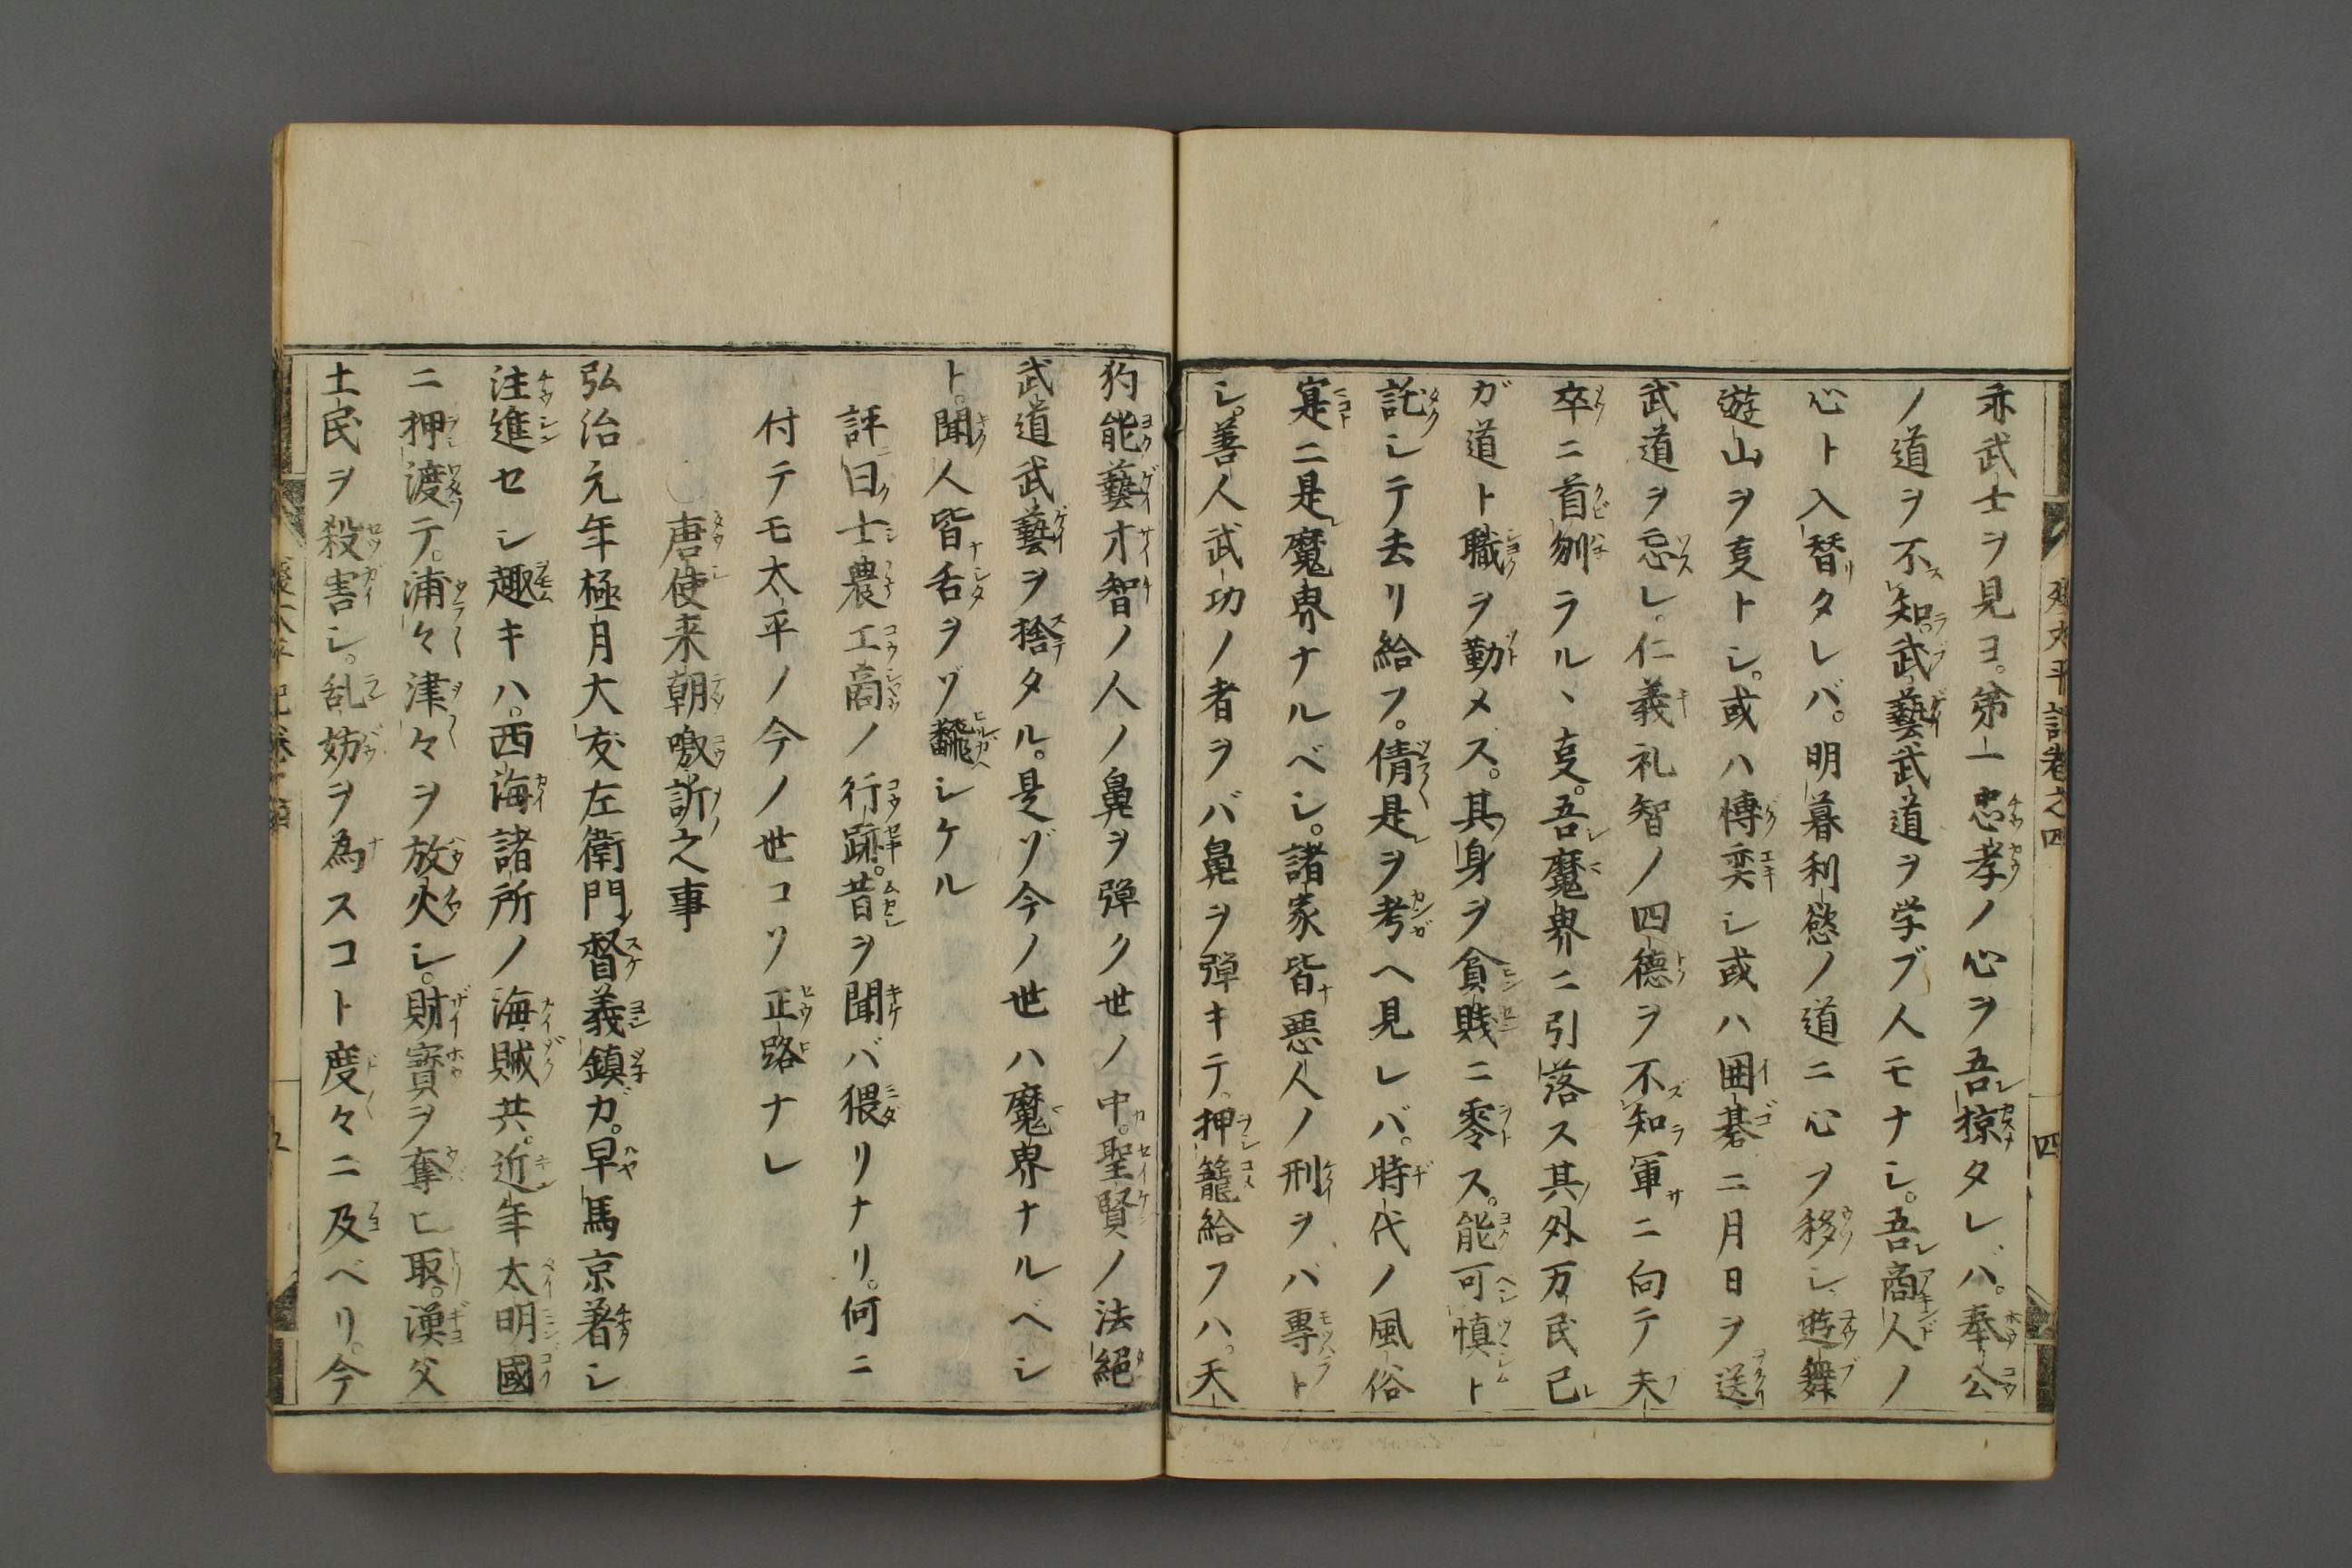 赤武士ヲ見ヨ。第一忠孝ノ心ヲ吾掠タレバ。奉公
ノ道ヲ不知。武藝武道ヲ学ブ人モナシ。吾商人ノ
心ト入替タレバ。明暮利慾ノ道ニ心ヲ移シ遊舞
遊山ヲ叓トシ。或ハ博奕シ或ハ囲碁ニ月日ヲ送
武道ヲ忘レ。仁義礼智ノ四徳ヲ不知軍ニ向テ夫
卒ニ首刎ラルヽ叓。吾魔界ニ引落ス其外万民己
ガ道ト職ヲ勤メス。其身ヲ貧賎ニ零ス。能可慎ト
託シテ去リ給フ。倩是ヲ考ヘ見レバ。時代ノ風俗
寔ニ是魔界ナルベシ。諸家皆悪人ノ刑ヲバ專ト
シ。善人武功ノ者ヲバ鼻ヲ弾キテ。押籠給フハ。天
狗能藝才智ノ人ノ鼻ヲ弾ク世ノ中。聖賢ノ法絕
武道武藝ヲ捨タル。是ゾ今ノ世ハ魔界ナルベシ
ト。聞人皆舌ヲゾ飜シケル
評曰士農工商ノ行跡。昔ヲ聞バ猥リナリ。何ニ
付テモ太平ノ今ノ世コソ正路ナレ
唐使来朝嗷訴之事
弘治元年極月大友左衛門督義鎮ガ。早馬京著シ
注進セシ趣キハ。西海諸所ノ海賊共。近年太明國
ニ押渡テ。浦々津々ヲ放火シ。財寳ヲ奪ヒ取。漢父
土民ヲ殺害シ。乱妨ヲ為スコト度々ニ及ベリ。今